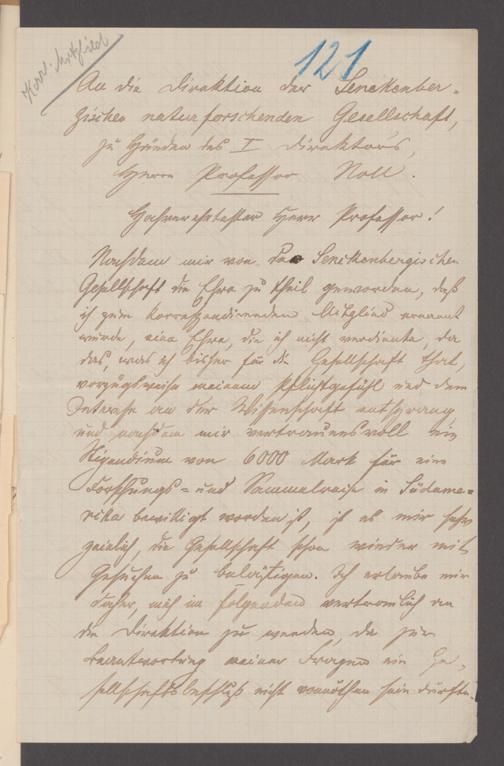 Korr. Mitglied
121
An die Direktion der Senckenber-
gischen naturforschenden Gesellschaft,
zu Händen des I Direktors,
Herrn Professor Noll.
Hochverehrtester Herr Professor!
Nachdem mir von der Senckenbergischen
Gesellschaft die Ehre zu theil geworden, daß
ich zum korrespondirenden Mitglied ernannt
wurde, eine Ehre, die ich nicht verdiente, da
das, was ich bisher für die Gesellschaft that,
vorzugsweise meinem Pflichtgefühl und dem
Interesse an der Wissenschaft entsprang
und nachdem mir vertrauensvoll ein
Stipendium von 6000 Mark für eine
Forschungs- und Sammelreise in Südame-
rika bewilligt worden ist, ist es mir sehr
peinlich, die Gesellschaft schon wieder mit
Gesuchen zu belästigen. Ich erlaube mir
daher, mich im folgenden vertraulich an
die Direktion zu wenden, da zur
Beantwortung meiner Fragen ein Ge-
sellschaftsbeschluß nicht vonnöthen sein dürfte.